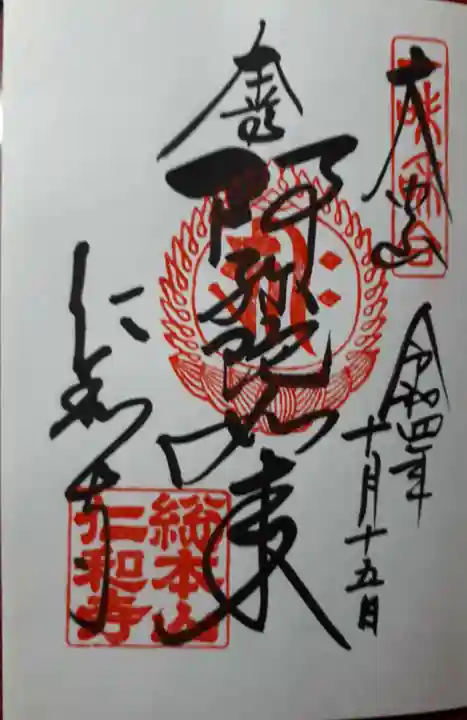 大内山
令和四年
十月十五日
金堂
阿弥陀如来
仁和寺
総本山
仁和寺